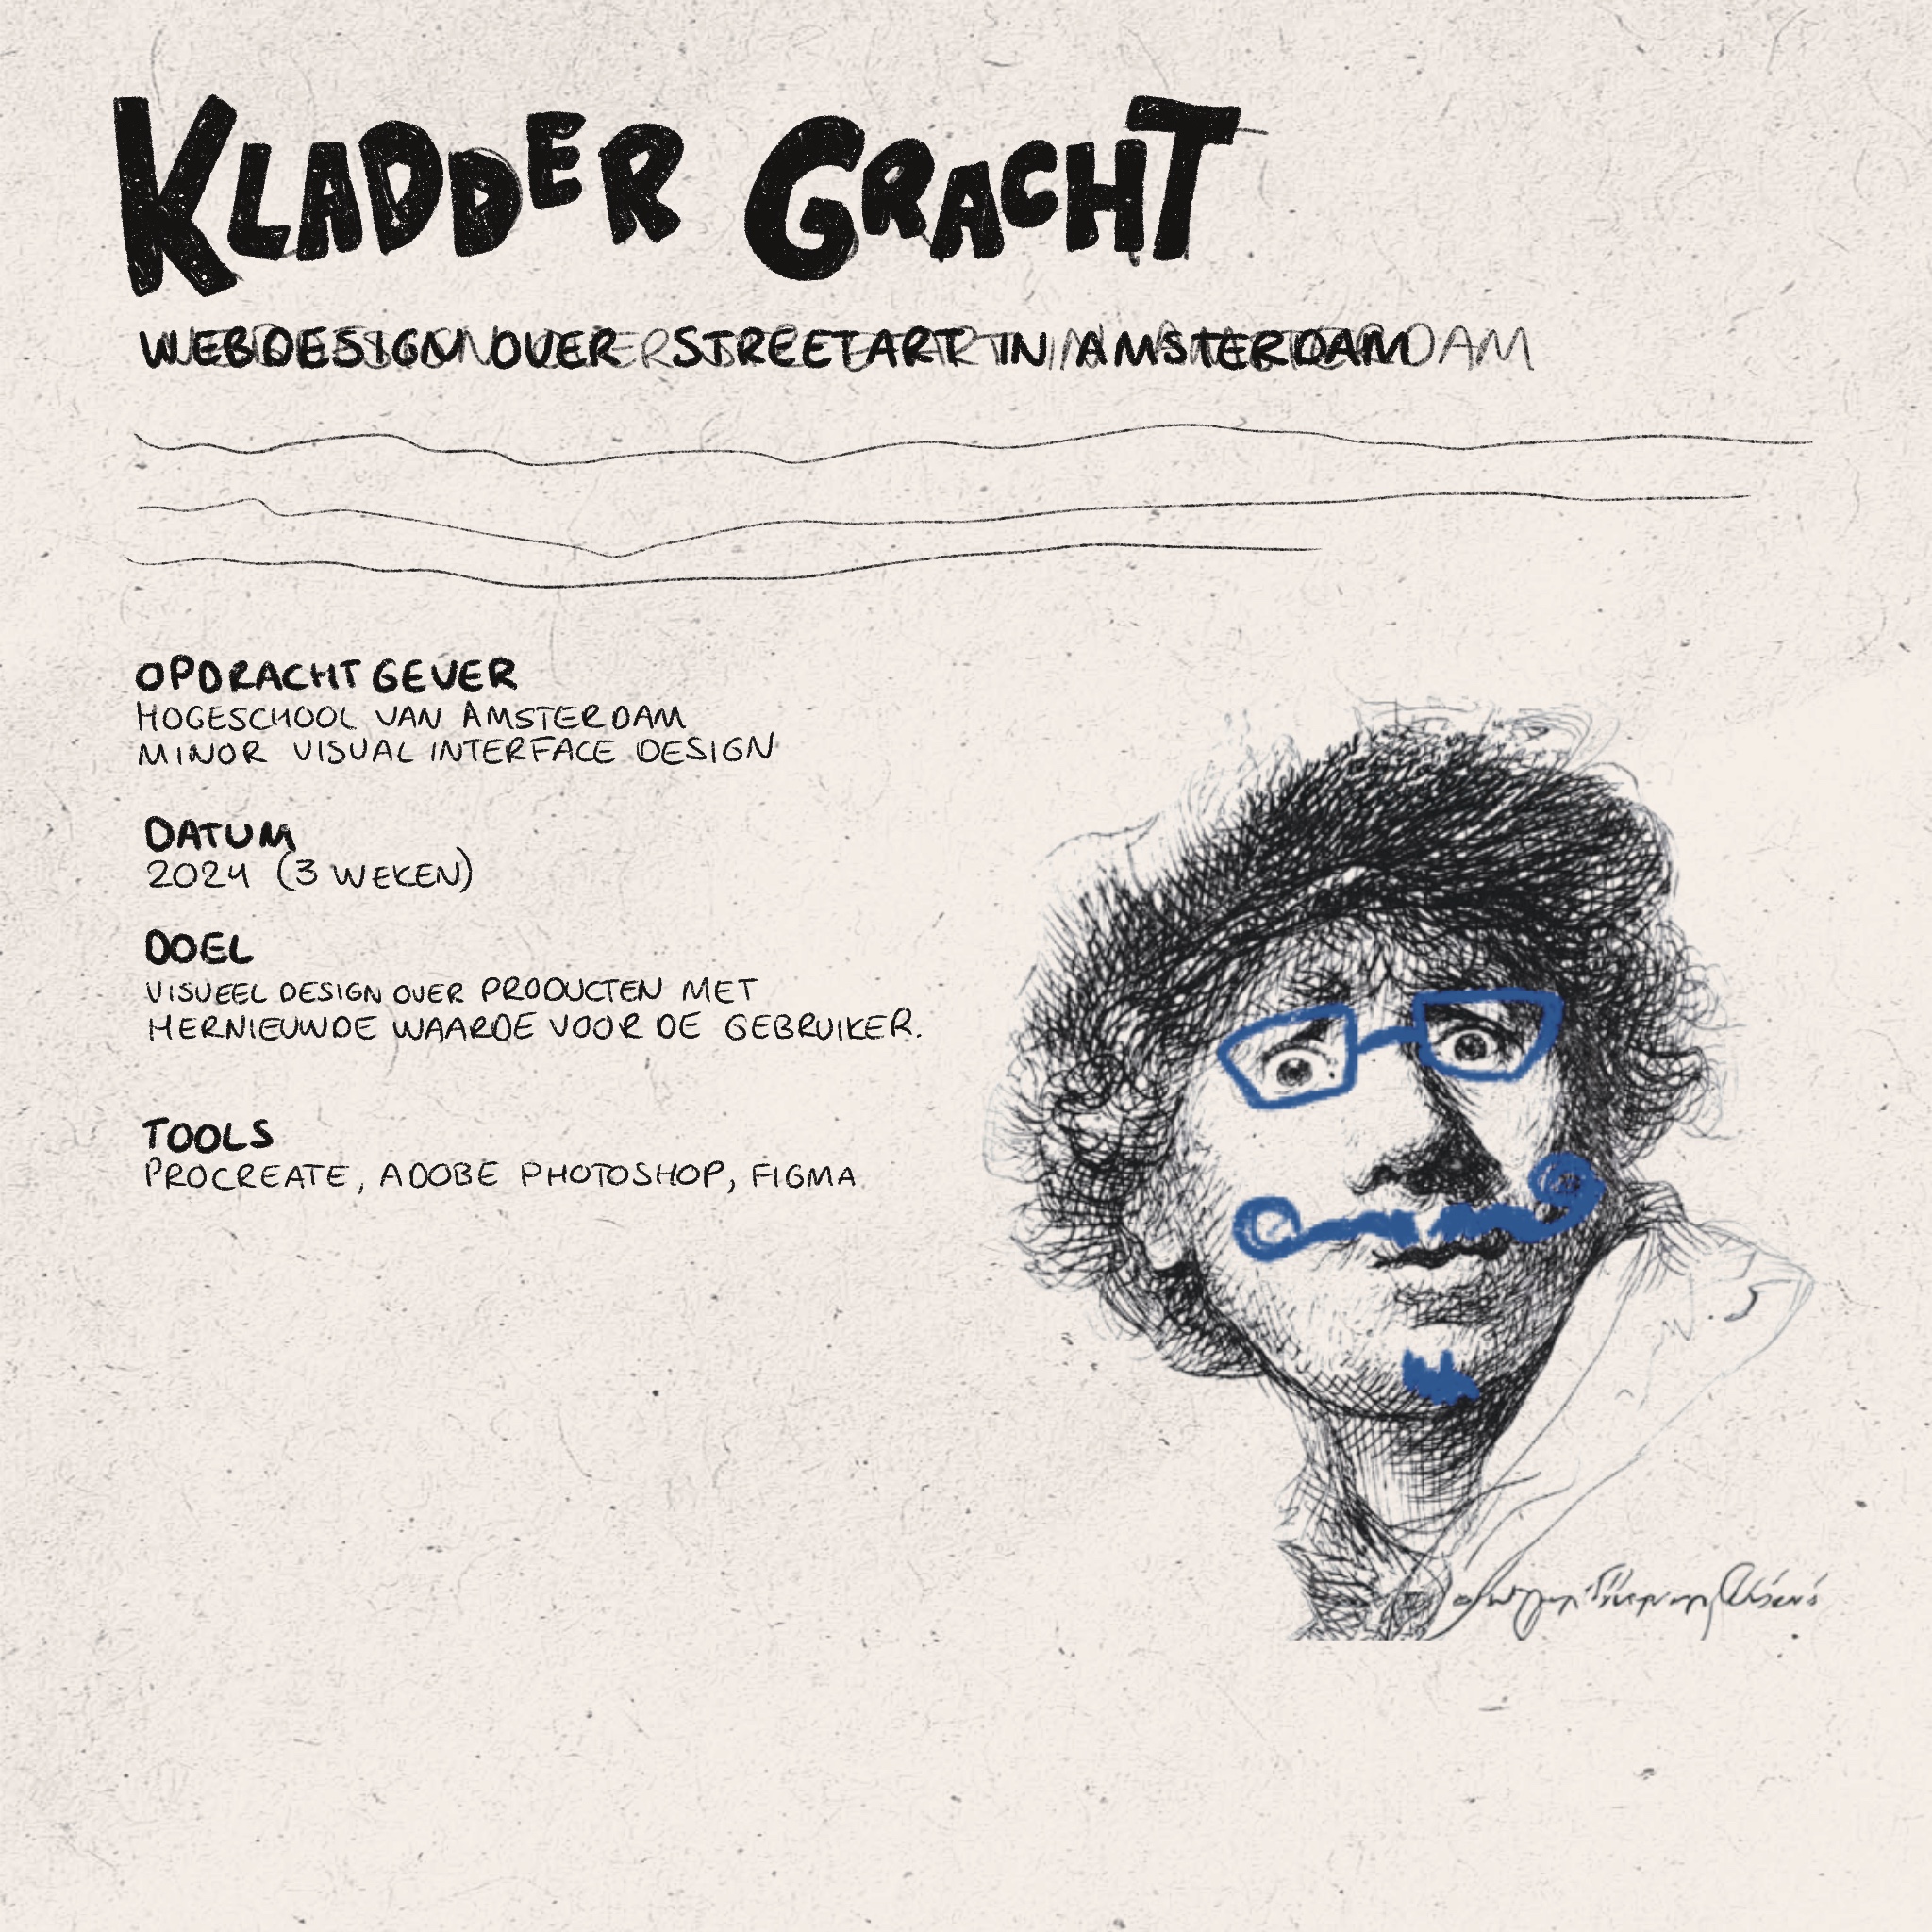 KLADDER GRACHT
WEBDESIGN OVER STREETART IN AMSTERDAM
OPDRACHTGEVER
HOGESCHOOL VAN AMSTERDAM
MINOR VISUAL INTERFACE DESIGN
DATUM
2024 (3 WEKEN)
DOEL
VISUEEL DESIGN OVER PRODUCTEN MET
HERNIEUWDE WAARDE VOOR DE GEBRUIKER.
TOOLS
PROCREATE, ADOBE PHOTOSHOP, FIGMA